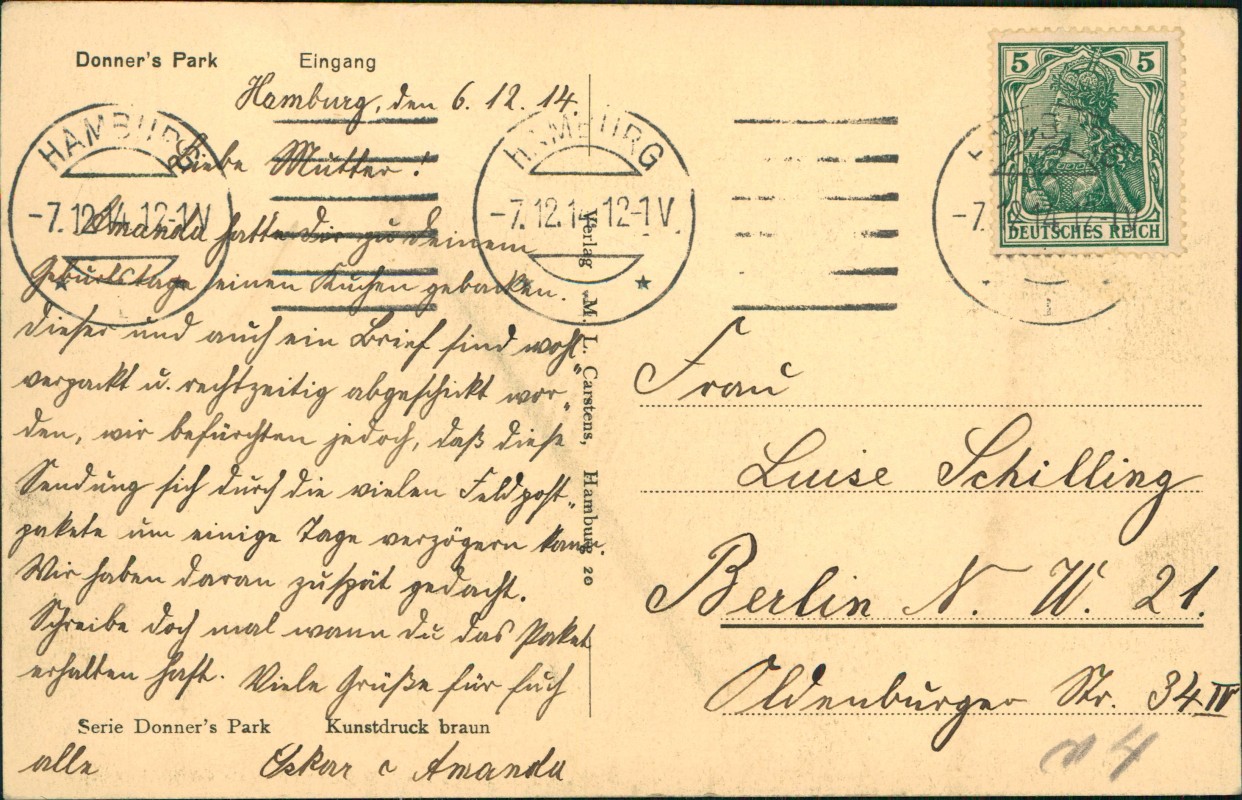 Donner's Park Eingang
Hamburg, den 6. 12. 14.
Liebe Mutter!
Amanda hatte dir zu deinem
Geburtstage einen Kuchen gebacken.
Dieser und auch ein Brief sind wohl
verpackt u. rechtzeitig abgeschickt wor-
den, wir befürchten jedoch, daß diese
Sendung sich durch die vielen Feldpost-
pakete um einige Tage verzögern kann.
Wir haben daran zu spät gedacht.
Schreibe doch mal wann du das Paket
erhalten hast. Viele Grüße für Euch
Serie Donner's Park Kunstdruck braun
alle Oskar u Amanda
HAMBURG
-7.12.14.12-1V
HAMBURG
-7.12.14.12-1V.
Verlag M. L. Carstens, Hamburg 20
5 5
DEUTSCHES REICH
-7.12.14.12-1V.
Frau
Luise Schilling
Berlin N. W. 21.
Oldenburger Str. 34 IV